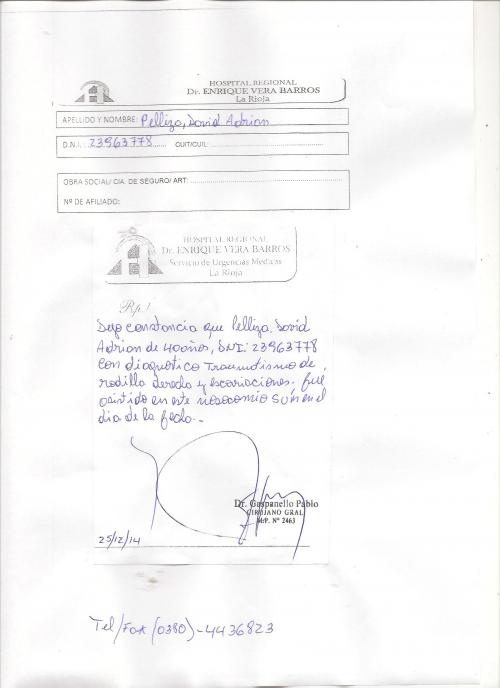 HOSPITAL REGIONAL
Dr. ENRIQUE VERA BARROS
La Rioja
APELLIDO Y NOMBRE: Pelliza, David Adrian
D.N.I.: 23963778 CUIT/CUIL:
OBRA SOCIAL/ CIA. DE SEGURO/ ART:
Nº DE AFILIADO:
HOSPITAL REGIONAL
Dr. ENRIQUE VERA BARROS
Servicio de Urgencias Medicas
La Rioja
Rp./
Dejo constancia que Pelliza, David
Adrian de 40 años, DNI: 23963778
con diagnostico Traumatismo de
rodilla derecha y escoriaciones. fue
asistido en este nosocomio en el
dia de la fecha.-
Dr. Gaspanello Pablo
CIRUJANO GRAL
M.P. Nº 2463
25/12/14
Tel/Fax (0380)-4436823